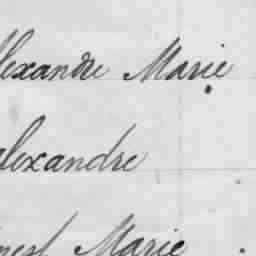 Alexandre Marie
alexandre
Marie